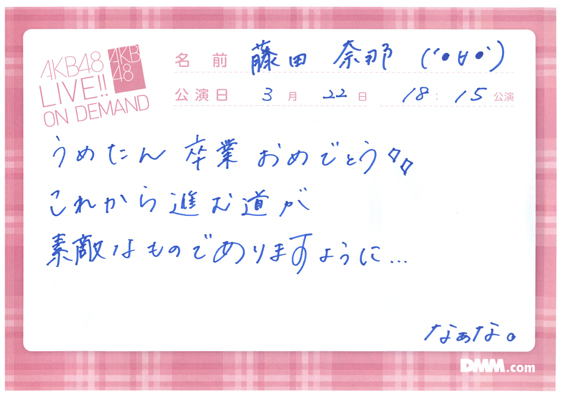 AKB48
LIVE!!
ON DEMAND
AKB
48
名前 藤田 奈那 (´●∀●`)
公演日 3月 22日 18:15公演
うめたん 卒業 おめでとう
これから進む道が
素敵なものでありますように…
なぁな。
DMM.com